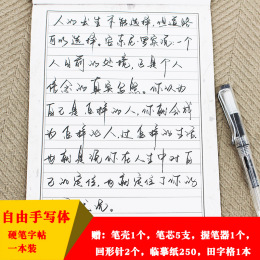 人的出生不能选择，但道路
可以选择。安东尼·罗宾说：一个
人目前的处境，这是个人
信念的真实呈照。你认为
自己是怎样的人，你就会称
为怎样的人，过怎样的生活
也就是说你在人生中对自
己的定位，也就定位了你的
自由手写体
硬笔字帖
一本装
赠：笔壳1个，笔芯5支，握笔器1个，
回形针2个，临摹纸250，田字格1本